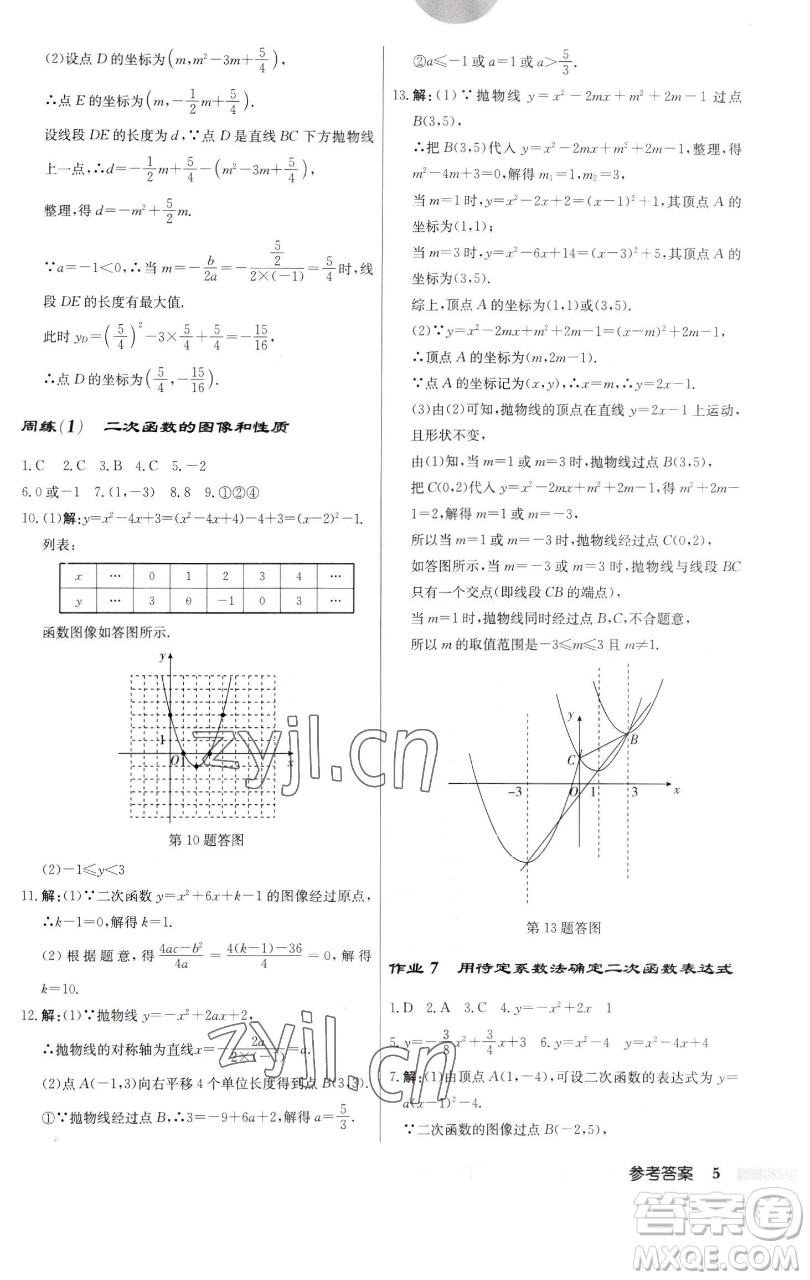 (2)设点 D 的坐标为(m,m²-3m+5/4),
∴点 E 的坐标为(m,-1/2m+5/4).
设线段 DE 的长度为 d,∵点 D 是直线 BC 下方抛物线
上一点,∴d=-1/2m+5/4-(m²-3m+5/4),
整理,得 d=-m²+5/2m.
∵a=-1<0,∴当 m=-b/2a=-(5/2)/(2×(-1))=5/4时,线
段 DE 的长度有最大值.
此时 y_D=(5/4)²-3×5/4+5/4=-15/16,
∴点 D 的坐标为(5/4,-15/16).
周练(1) 二次函数的图像和性质
1.C 2.C 3.B 4.C 5.-2
6.0 或-1 7.(1,-3) 8.8 9.①②④
10.(1)解:y=x²-4x+3=(x²-4x+4)-4+3=(x-2)²-1.
列表:
x … 0 1 2 3 4 …
y … 3 0 -1 0 3 …
函数图像如答图所示.
y
1
O 1 x
第 10 题答图
(2)-1≤y<3
11.解:(1)∵二次函数 y=x²+6x+k-1 的图像经过原点,
∴k-1=0,解得 k=1.
(2)根据题意,得 4ac-b²/4a=4(k-1)-36/4=0,解得
k=10.
12.解:(1)∵抛物线 y=-x²+2ax+2,
∴抛物线的对称轴为直线x=-2a/2×(-1)=a.
(2)点 A(-1,3)向右平移 4 个单位长度得到点 B(3,3).
①∵抛物线经过点 B,∴3=-9+6a+2,∴a=5/3.
②a≤-1 或 a=1 或 a>5/3.
13.解:(1)∵抛物线 y=x²-2mx+m²+2m-1 过点
B(3,5),
∴把 B(3,5)代入 y=x²-2mx+m²+2m-1,整理,得
m²-4m+3=0,解得 m₁=1,m₂=3,
当 m=1 时,y=x²-2x+2=(x-1)²+1,其顶点 A 的
坐标为(1,1);
当 m=3 时,y=x²-6x+14=(x-3)²+5,其顶点 A 的
坐标为(3,5).
综上,顶点 A 的坐标为(1,1)或(3,5).
(2)∵y=x²-2mx+m²+2m-1=(x-m)²+2m-1,
∴顶点 A 的坐标为(m,2m-1).
∵点 A 的坐标记为(x,y),∴y=2x-1.
(3)由(2)可知,抛物线的顶点在直线 y=2x-1 上运动,
且形状不变,
由(1)知,当 m=1 或 m=3 时,抛物线过点 B(3,5),
把 C(0,2)代入 y=x²-2mx+m²+2m-1,得 m²+2m-
1=2,解得 m=1 或 m=-3,
所以当 m=1 或 m=-3 时,抛物线经过点 C(0,2).
如答图所示,当 m=-3 或 m=3 时,抛物线与线段 BC
只有一个交点(即线段 CB 的端点),
当 m=1 时,抛物线同时经过点 B,C,不合题意,
所以 m 的取值范围是-3≤m≤3 且 m≠1.
y
B
C
-3 O 1 3 x
第 13 题答图
作业 7 用待定系数法确定二次函数表达式
1.D 2.A 3.C 4.y=-x²+2x 1
5.y=-3/8x²+3/4x+3 6.y=-x²-4x+4
7.解:(1)由顶点 A(1,-4),可设二次函数的表达式为 y=
a(x-1)²-4.
∵二次函数的图像过点 B(-2,5),
参考答案 5
zyjl.cn
zyjl.cn
答案圈
MXQE.COM